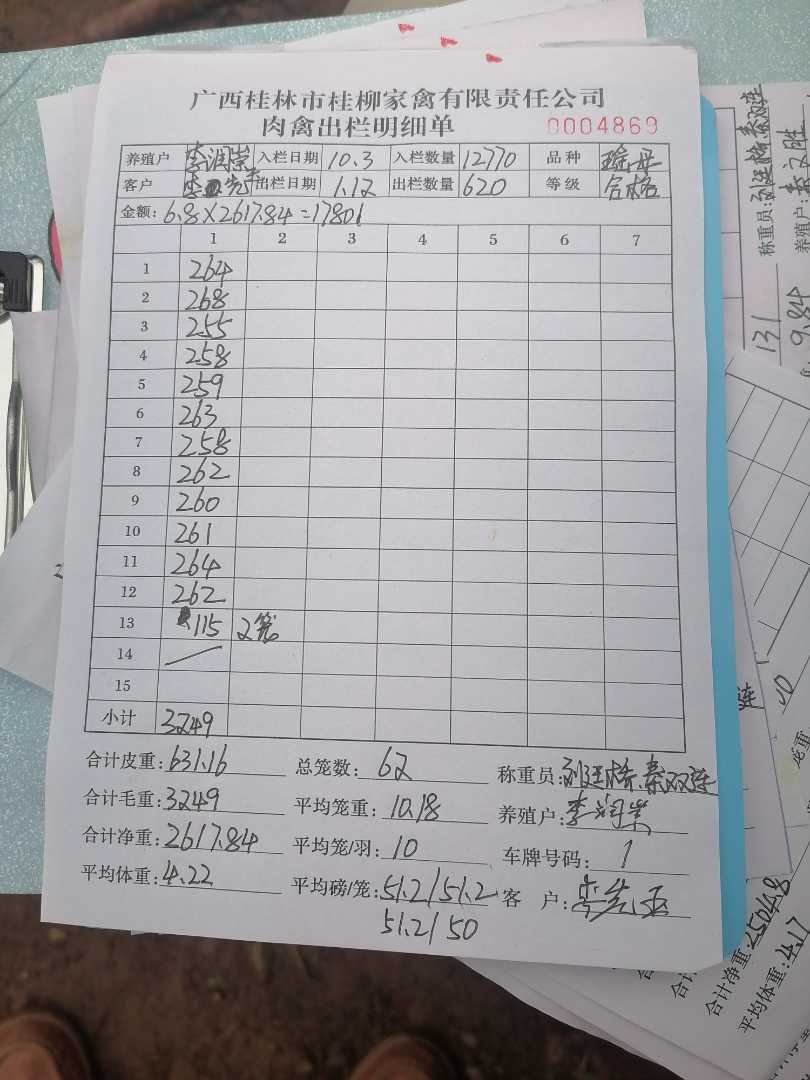 广西桂林市桂柳家禽有限责任公司
肉禽出栏明细单 0004869
养殖户 李润崇 入栏日期 10.3 入栏数量 12770 品种
客户 出栏日期 1.12 出栏数量 620 等级 合格
金额: 6.8×2617.84=17801
1 2 3 4 5 6 7
1 264
2 268
3 255
4 258
5 259
6 263
7 258
8 262
9 260
10 261
11 264
12 262
13 115 2笼
14
15
小计 3249
合计皮重: 631.16 总笼数: 62 称重员: 刘廷格、秦双连
合计毛重: 3249 平均笼重: 10.18 养殖户: 李润崇
合计净重: 2617.84 平均笼/羽: 10 车牌号码: 1
平均体重: 4.22 平均磅/笼: 51.2/51.2 客 户: 李先亚
51.2/50
称重员: 刘廷格 秦双连
养殖户:
131
9.84
合计净重: 2504.8
平均体重: 4.17